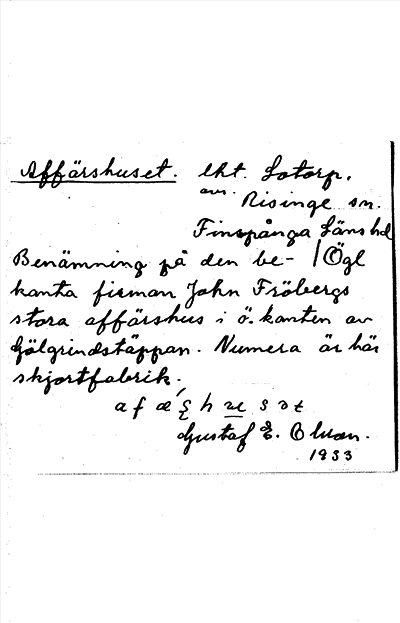 Affärshuset. lht. Lotorp.
avs. Risinge sn.
Finspånga Läns hd
Benämning på den be- / Ögl
kanta firman John Fröbergs
stora affärshus i ö. kanten av
Gölgrindstäppan. Numera är här
skjortfabrik.
Gustaf E. Olsson.
1933